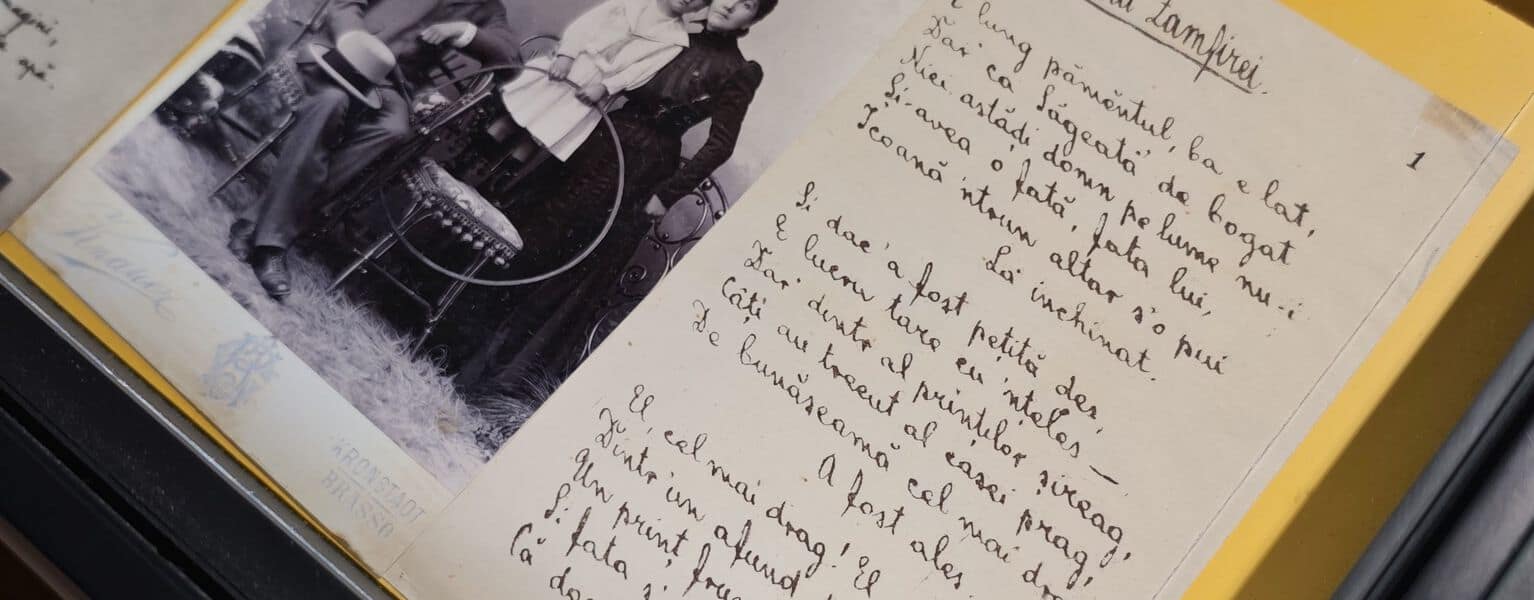 Zamfirei.
1
E lung pămêntul, ba e lat,
Dar ca Săgeată de bogat
Nici astădi domn pe lume nu-i
Si-avea o fată, fata lui,
Icoană 'ntrun altar s'o pui
La inchinat.
Si dac' a fost pețită des,
E lucru tare cu 'nțeles —
Dar dintr al prinților șireag,
Câți au trecut al casei prag,
De bunăseamă cel mai dra
A fost ales.
El, cel mai drag! El
Dintr'un afund
Un prinț, fru
Si fata
Că
KRONSTADT
BRASSO